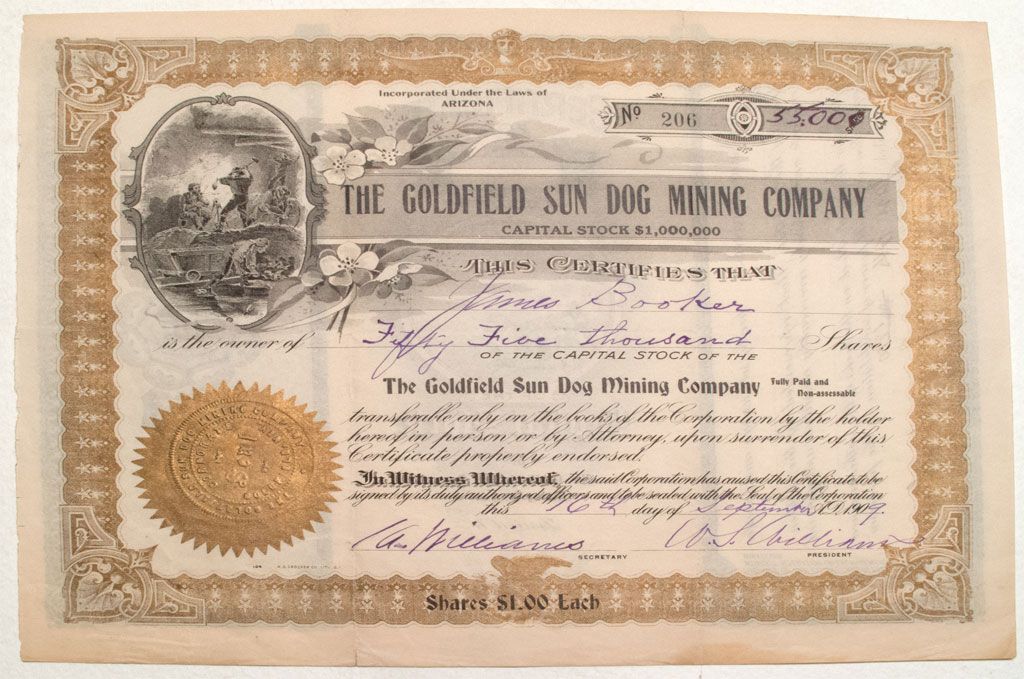 Incorporated Under the Laws of
ARIZONA
No 206 55.000
THE GOLDFIELD SUN DOG MINING COMPANY
CAPITAL STOCK $1,000,000
THIS CERTIFIES THAT
James Booker
is the owner of Fifty Five thousand Shares
OF THE CAPITAL STOCK OF THE
The Goldfield Sun Dog Mining Company Fully Paid and
Non-assessable
transferable only on the books of the Corporation by the holder
hereof in person or by Attorney, upon surrender of this
Certificate properly endorsed.
In Witness Whereof, the said Corporation has caused this Certificate to be
signed by its duly authorized officers and to be sealed with the Seal of the Corporation
this 16th day of September A.D. 1909.
Williams W. S. Williams
SECRETARY PRESIDENT
Shares $1.00 Each